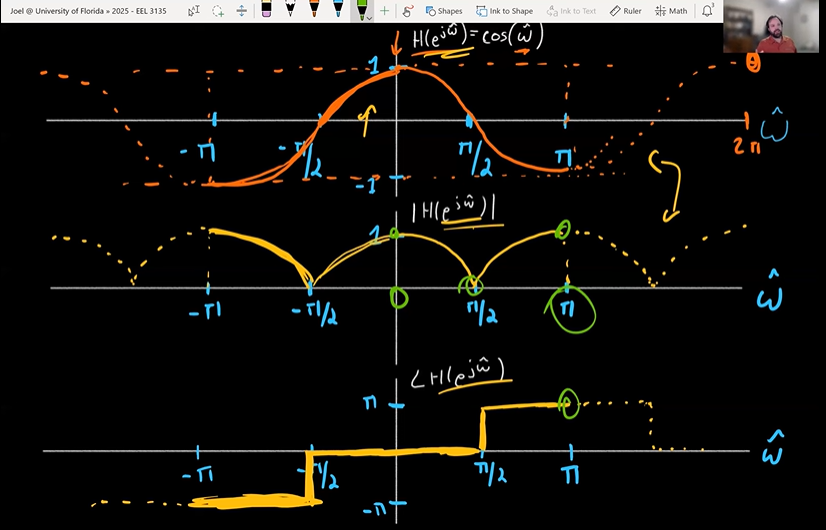 Joel @ University of Florida » 2025 - EEL 3135
Shapes
Ink to Shape
Ink to Text
Ruler
Math
H(e^jω̂) = cos(ω̂)
1
-π
-π/2
π/2
π
2π
ω̂
-1
|H(e^jω̂)|
1
-π
-π/2
0
π/2
π
ω̂
∠H(e^jω̂)
π
-π
-π/2
π/2
π
ω̂
-π